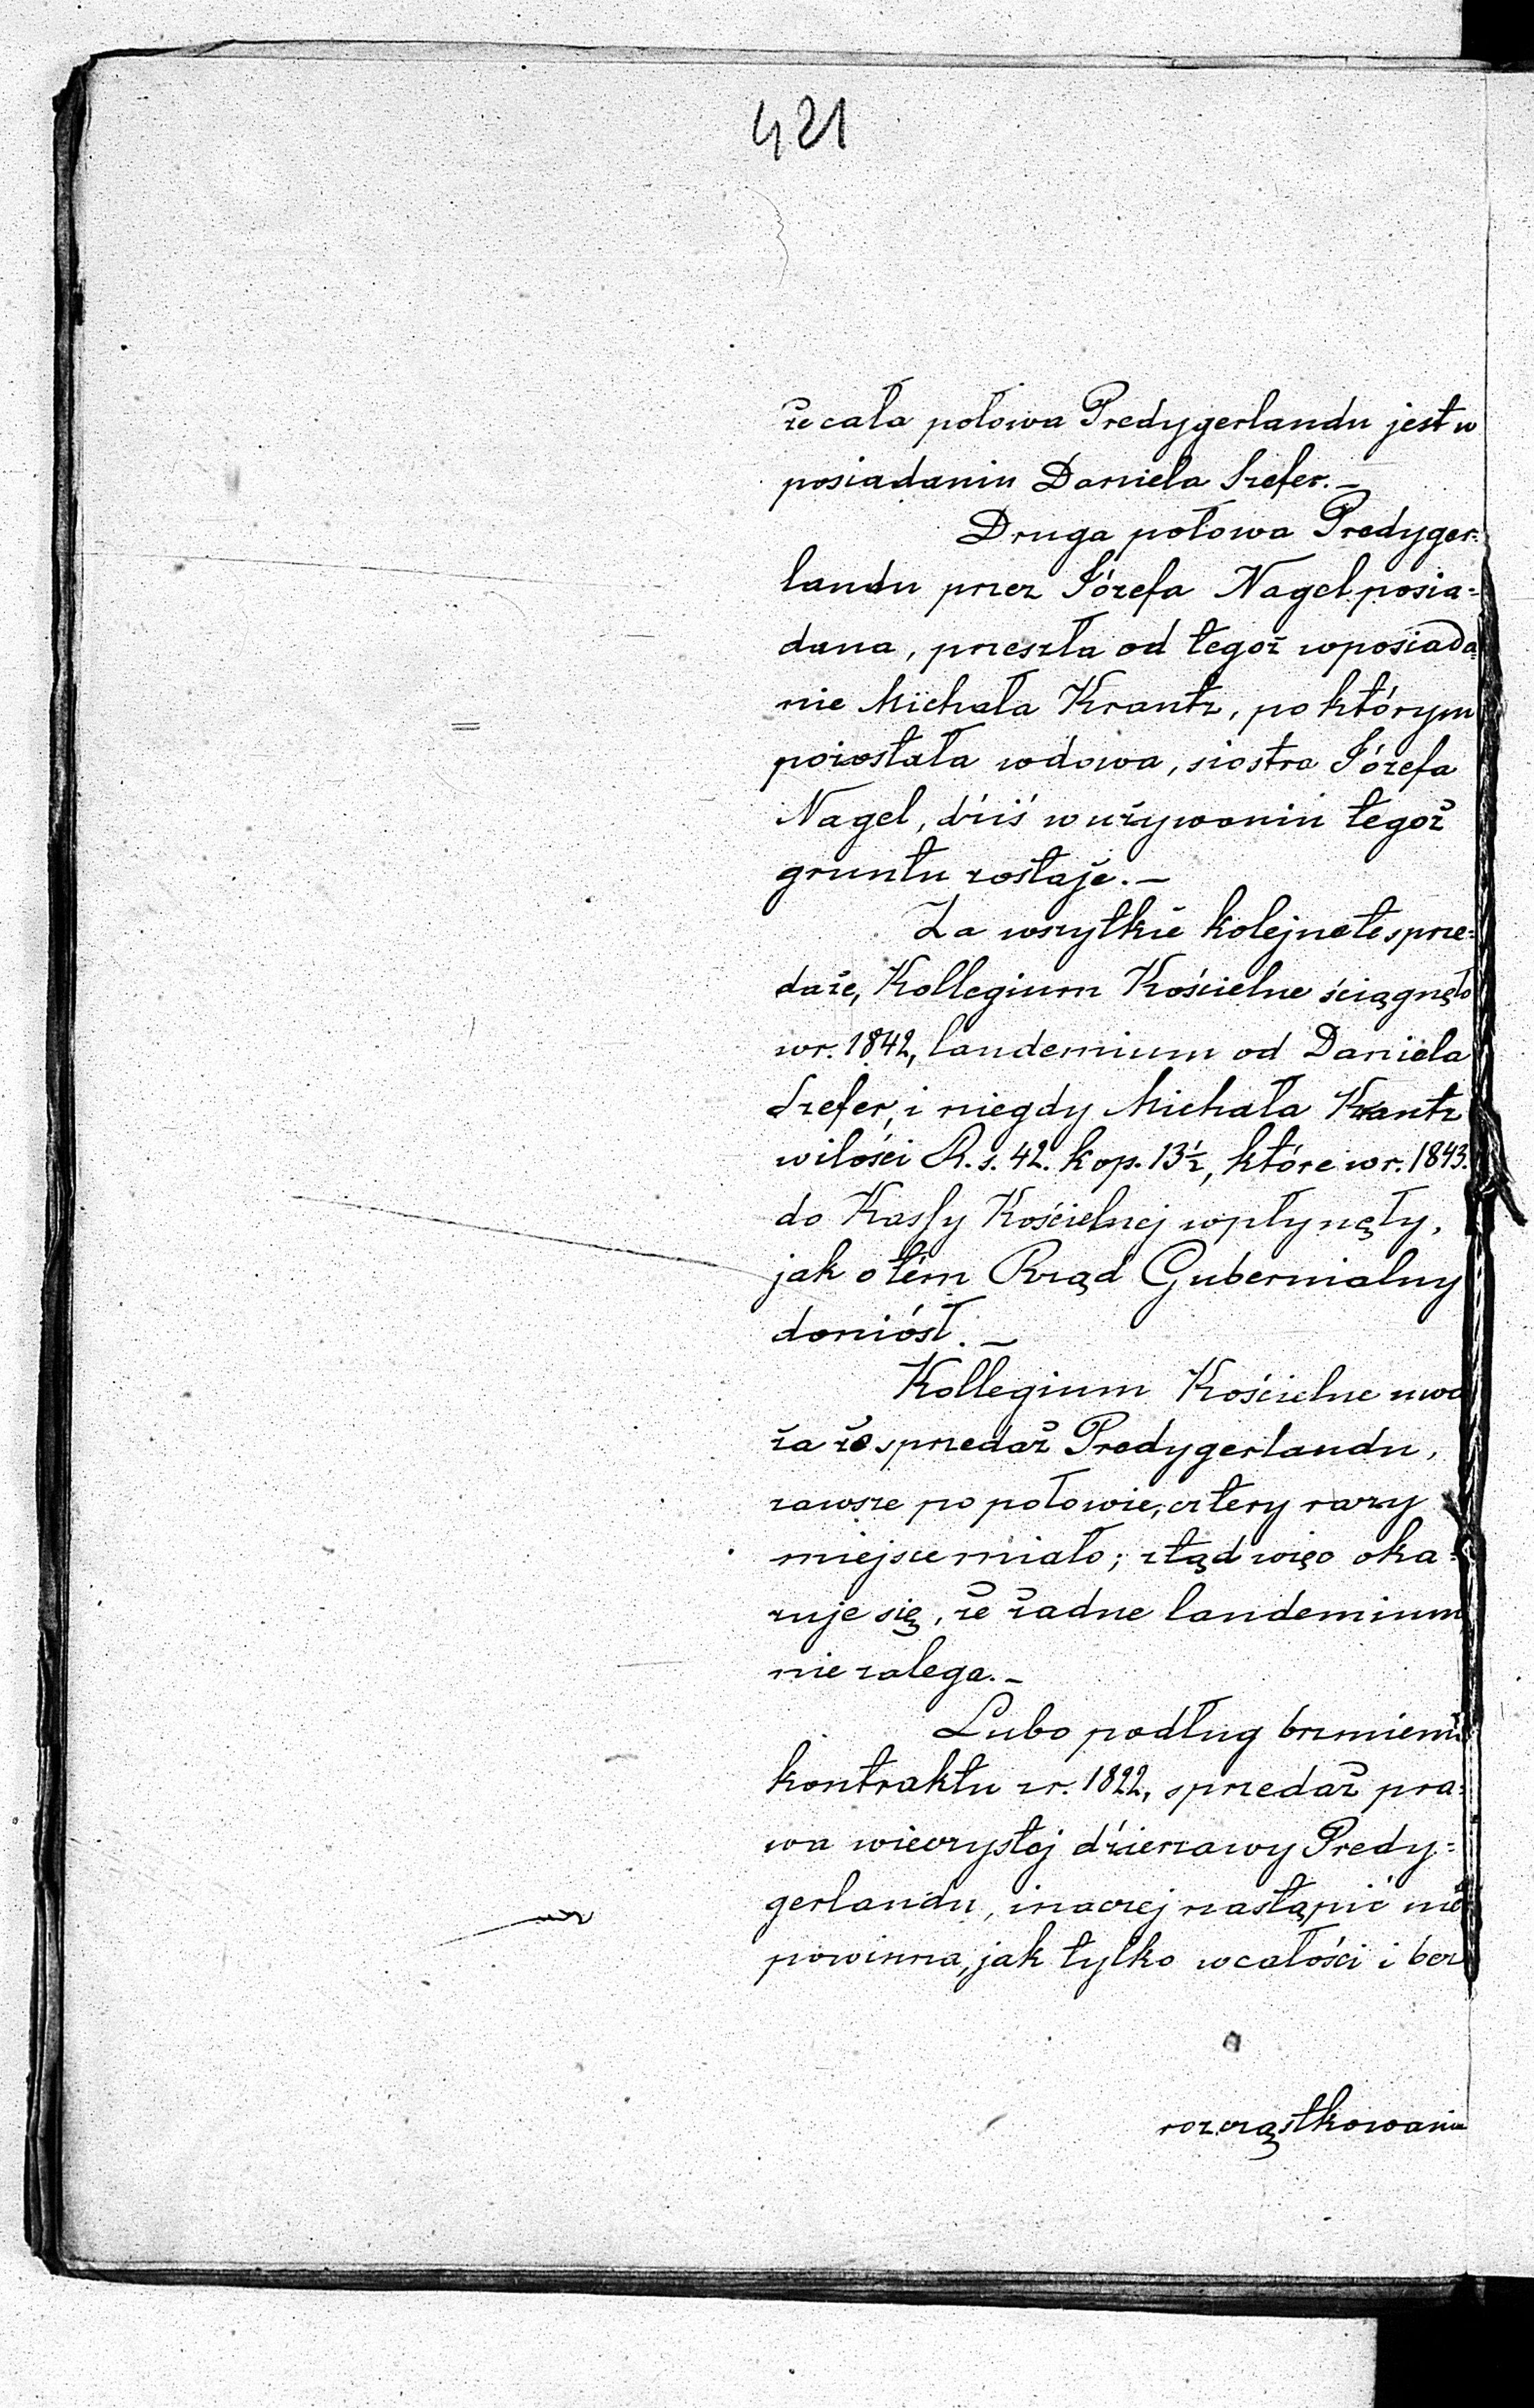 421
że cała połowa Predygerlandu jest w
posiadaniu Daniela Szefer. –
Druga połowa Predyger=
landu przez Józefa Nagel posia=
dana, przeszła od tegoż w posiada=
nie Michała Krantz, po którym
pozostała wdowa, siostra Józefa
Nagel, dziś w używaniu tegoż
gruntu zostaje. –
Za wszytkie kolejne te sprze=
daże, Kollegium Kościelne ściągnęło
w r. 1842, laudemium od Daniela
Szefer, i niegdy Michała Krantz
w ilości R. s. 42. kop. 13½, które w r. 1843.
do Kassy Kościelnej wpłynęły,
jak o tém Rząd Gubernialny
doniósł. –
Kollegium Kościelne uwa
ża że sprzedaż Predygerlandu,
zawsze po połowie, cztery razy
miejsce miało; ztąd więc oka=
zuje się, że żadne laudemium
nie zalega. –
Lubo podług brzmienia
kontraktu z r. 1822, sprzedaż pra=
wa wieczystej dzierzawy Predy=
gerlandu, inaczej nastąpić nie
powinna, jak tylko w całości i bez
rozcząstkowania